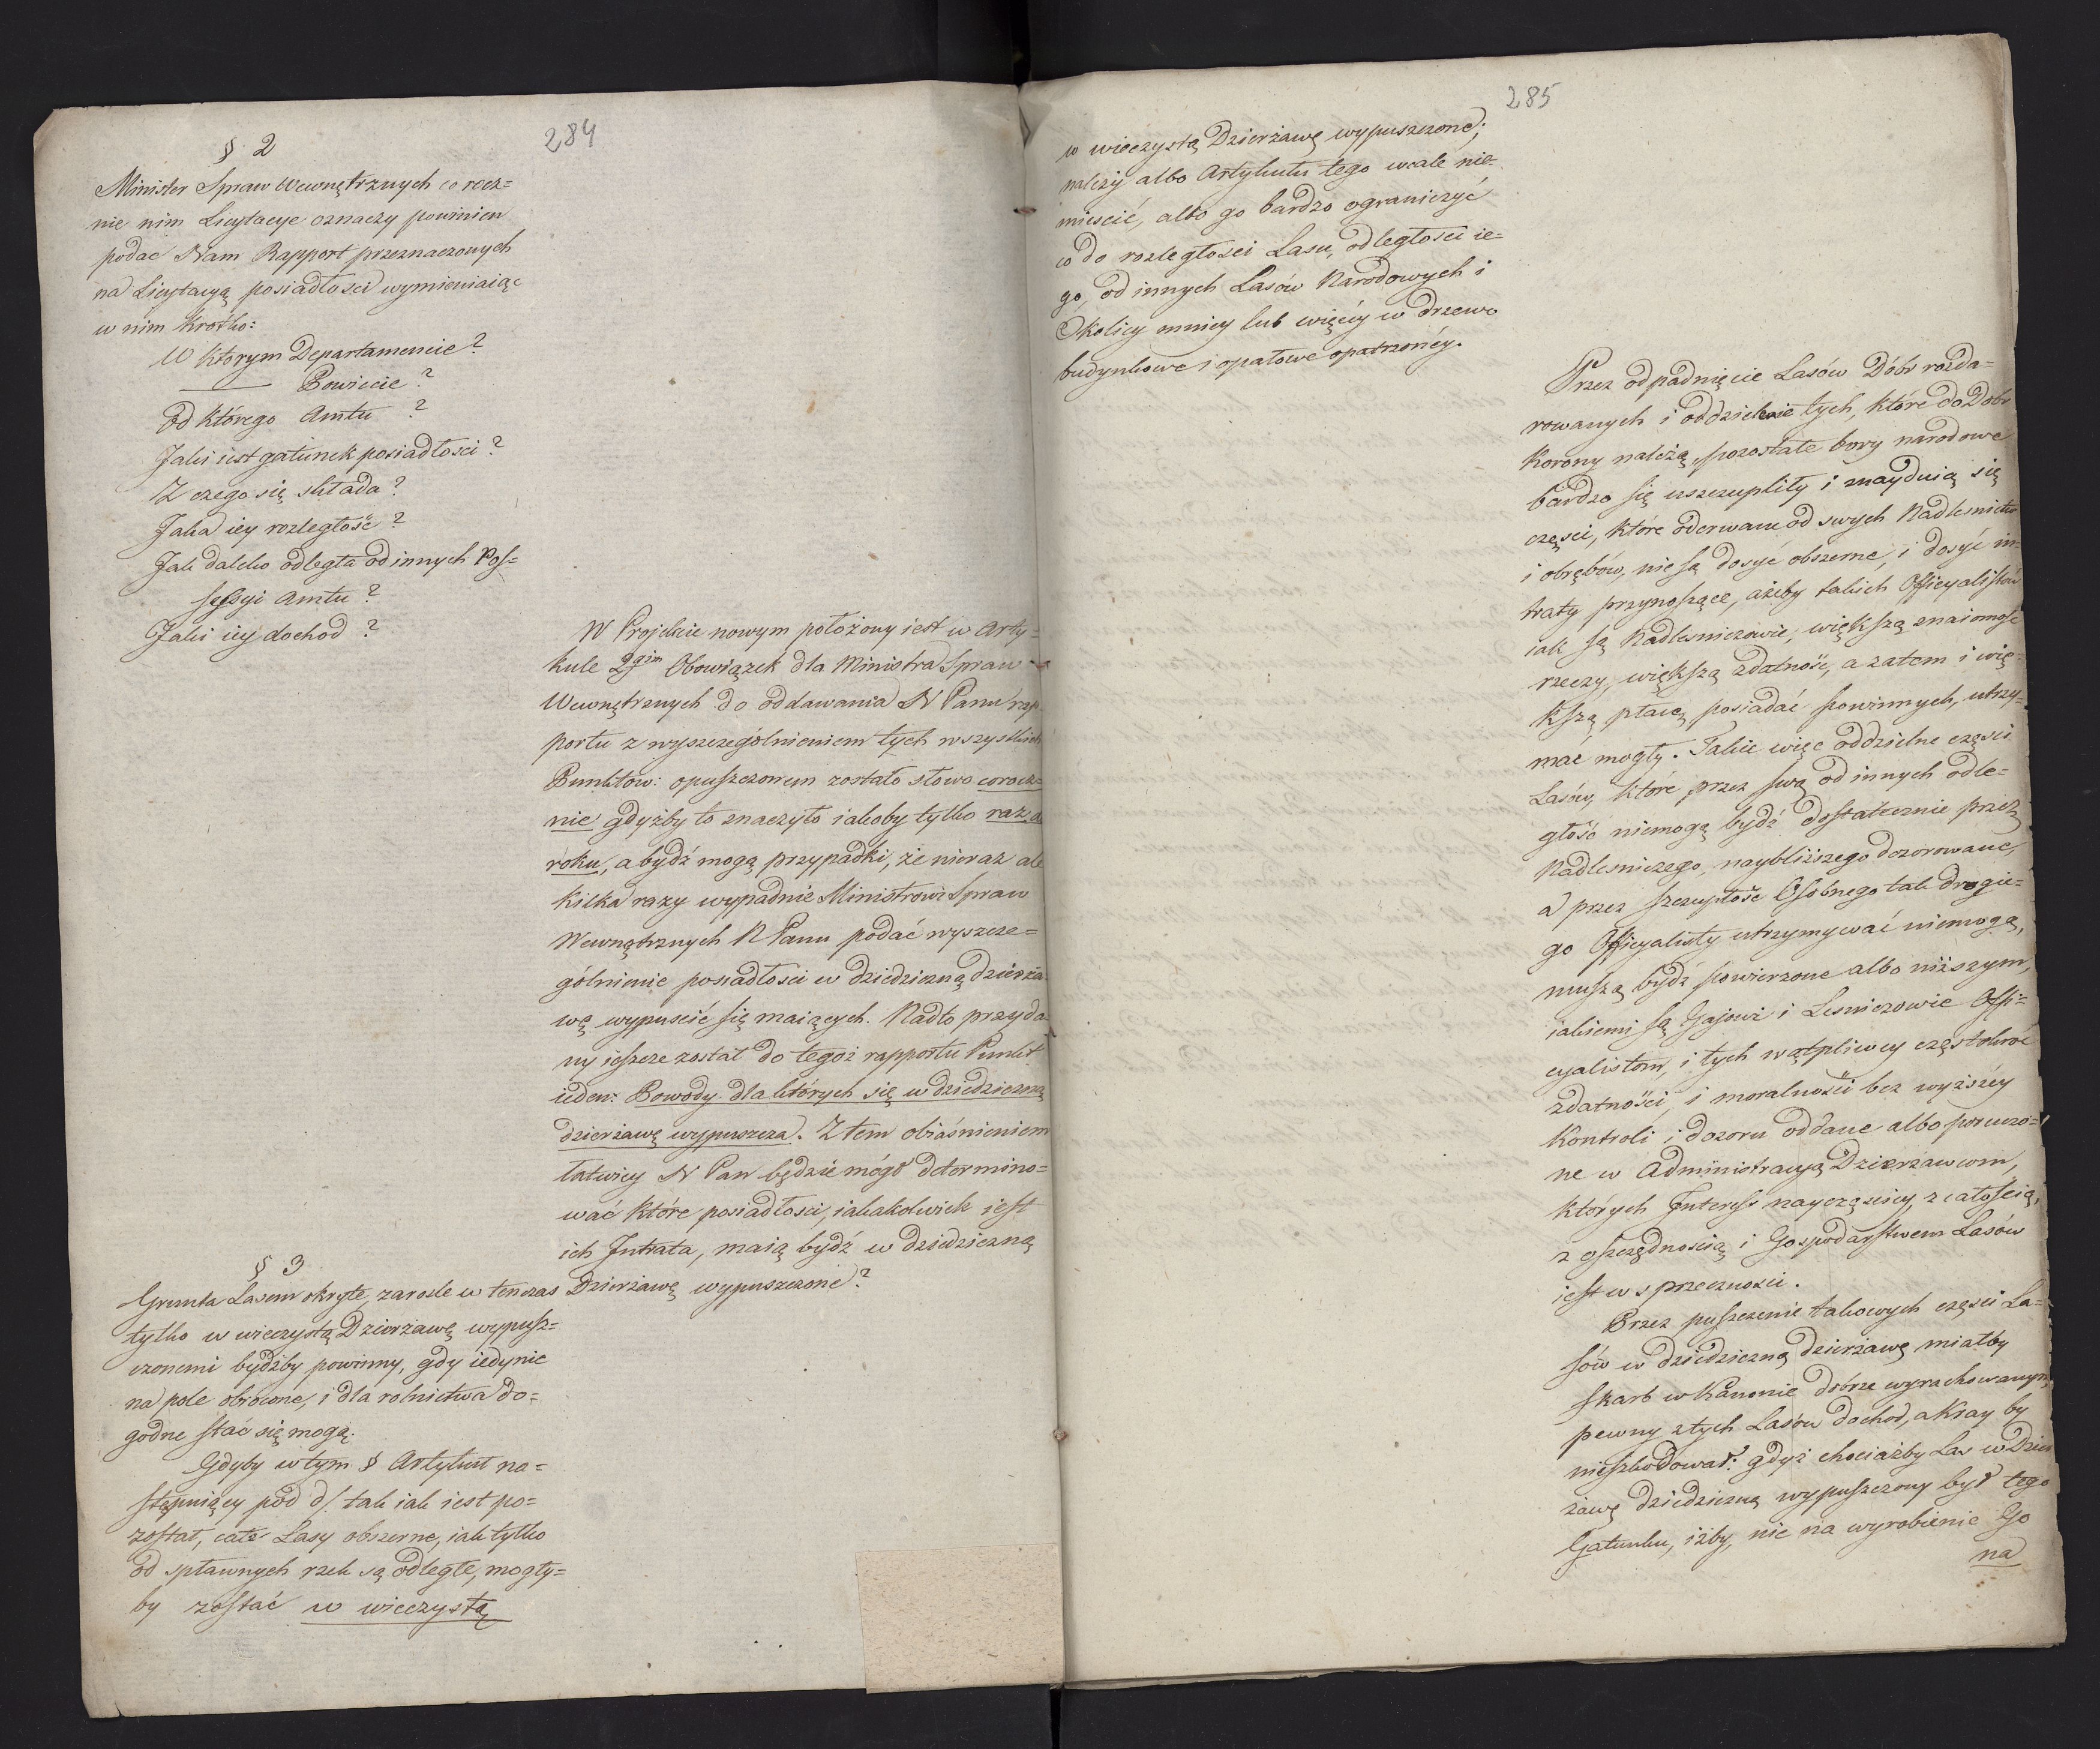 284
§ 2
Minister Spraw Wewnętrznych co rocz=
nie nim Licytacye oznaczy powinien
podać Nam Rapport przeznaczonych
na Licytacyą posiadłości wymieniaiąc
w nim krótko:
W ktorym Departamencie?
—— Powiecie?
od którego Amtu?
Jaki iest gatunek posiadłości?
Z czego się składa?
Jaka iey rozległość?
Jak daleko odległa od innych Pos=
sessyi Amtu?
Jaki iey dochod?
§ 3
Grunta Lasem okryte, zarosle w tenczas
tylko w wieczystą Dzierżawę wypusz=
czonemi bydźby powinny, gdy iedynie
na pole obrocone, i dla rolnictwa do=
godne stać się mogą.
Gdyby w tym § Artykuł na=
stępuiący pod d/. tak iak iest po=
zostat, całe Lasy obszerne, iak tylko
od spławnych rzek są odległe, mogły=
by zostać w wieczystą
W Projekcie nowym położony iest w Arty=
kule 2gim Obowiązek dla Ministra Spraw
Wewnętrznych do oddawania N Panu rap=
portu z wyszczególnieniem tych wszystkich
Punktow: opuszczonem zostało słowo corocz=
nie gdyżby to znaczyło iakoby tylko raz do
roku, a bydź mogą przypadki, że nieraz ale
kilka razy wypadnie Ministrowi Spraw
Wewnętrznych N Panu podać wyszcze=
gólnienie posiadłości w dziedziczną dzierża
wę wypuscić się maiących. Nadto przyda=
ny ieszcze został do tegoż rapportu Punkt
ieden: Powody dla których się w dziedziczną
dzierżawę wypuszcza. Z tem obiaśnieniem
łatwiey N Pan będzie mógł determino=
wać które posiadłości, iakakolwiek iest
ich Intrata, maią bydź w dziedziczną
Dzierżawę wypuszczone?
285
w wieczystą Dzierżawę wypuszczone;
należy albo Artykułu tego wcale nie=
miescić, albo go bardzo ograniczyć
co do rozległości Lasu, odległości ie=
go, od innych Lasów Narodowych i
Okolicy mniey lub więcey w drzewo
budynkowe i opałowe opatrzoney.
Przez odpadnięcie Lasów Dóbr rozda=
rowanych i oddzielenie tych, które do Dobr
Korony należą, pozostałe bory narodowe
bardzo się uszczupliły i znayduią się
części, które oderwane od swych Nadlesnictw
i obrębów, nie są dosyć obszerne, i dosyć in=
traty przynoszące, ażeby takich Officyalistów
iak są Nadlesniczowie, większą znaiomość
rzeczy, większą zdatność, a zatem i wię=
kszą płacę posiadać powinnych, utrzy=
mać mogły. Takie więc oddzielne części
Lasów, które przez swą od innych odle=
głość niemogą bydź dostatecznie przez
Nadlesniczego, naybliższego dozorowane,
a przez szczupłość Osobnego tak drogie=
go Officyalisty utrzymywać niemogą,
muszą bydź powierzone albo niższym,
iakiemi są Gajowi i Lesniczowie Offi=
cyalistom, i tych wątpliwey częstokroć
zdatności, i moralności bez wyższéy
Kontroli i dozoru oddane albo poruczo=
ne w Administracyą Dzierżawcom,
których Interess nayczęściey, z całością,
z oszczędnością i Gospodarstwem Lasów
iest w sprzeczności.
Przez puszczenie takowych części La=
sów w dziedziczną dzierżawę miałby
skarb w Kanonie dobrze wyrachowanym,
pewny z tych Lasów dochod, a Kray by
nieszkodował: gdyż chociażby Las w Dzier
żawę dziedziczną wypuszczony był tego
Gatunku, iżby, nic na wyrobienie Go
na